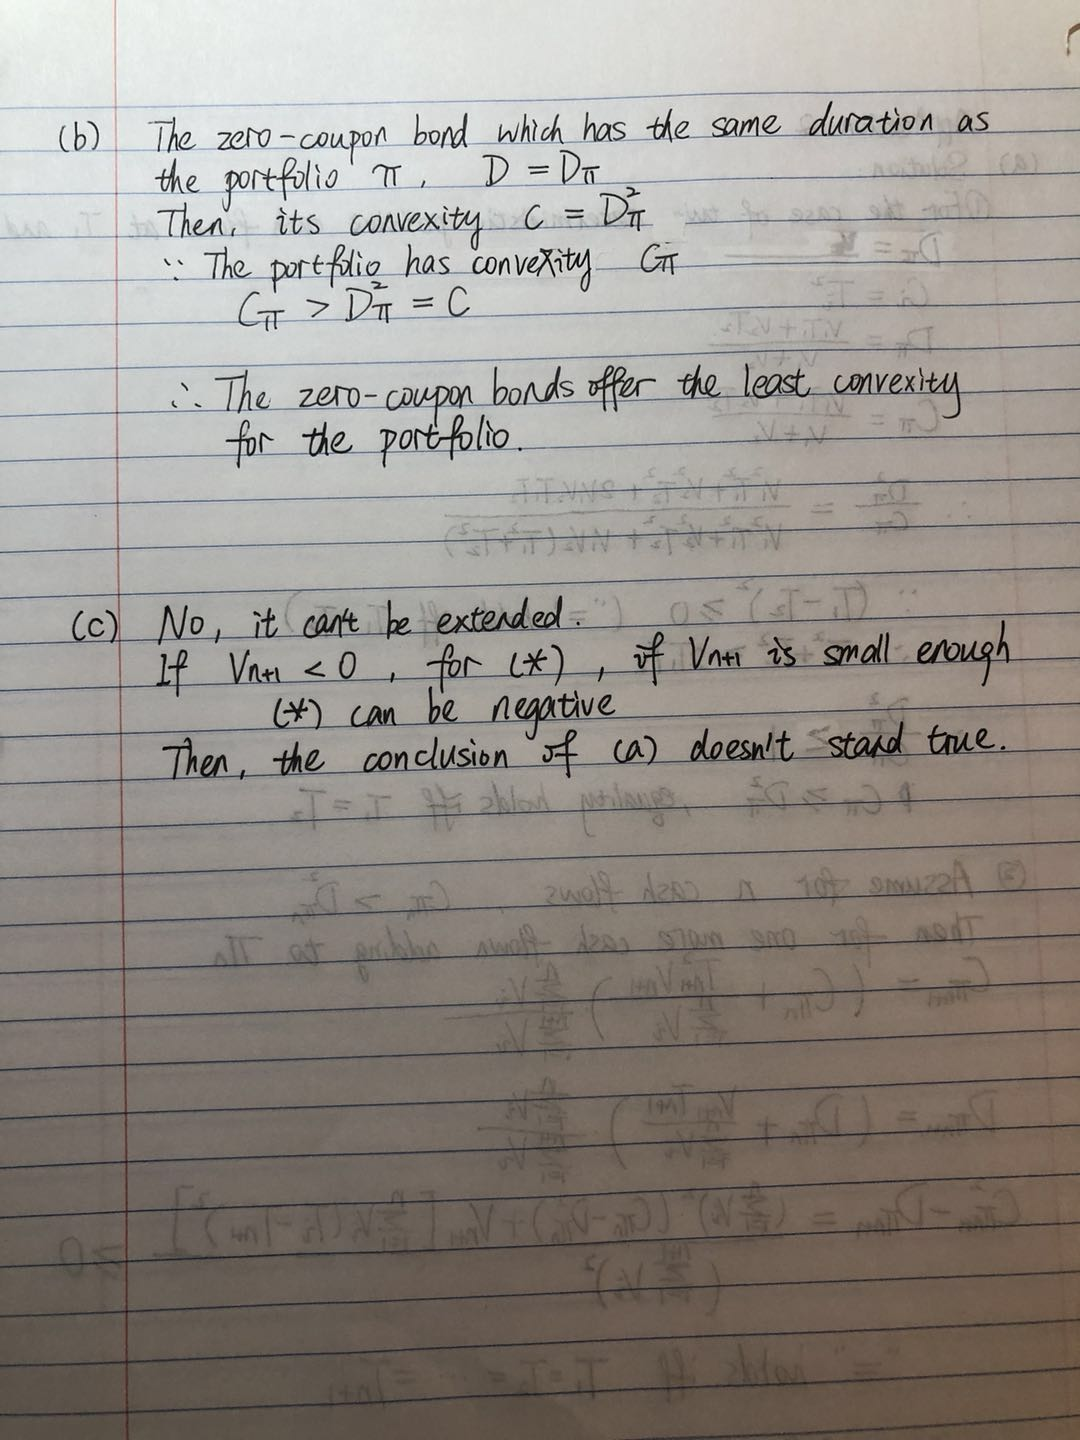 (b) The zero-coupon bond which has the same duration as
the portfolio π, D = Dπ
Then, its convexity C = Dπ²
∵ The portfolio has convexity Cπ
Cπ > Dπ² = C
∴ The zero-coupon bonds offer the least convexity
for the portfolio.
(c) No, it can't be extended.
If Vn+1 < 0, for (*), if Vn+1 is small enough
(*) can be negative
Then, the conclusion of (a) doesn't stand true.